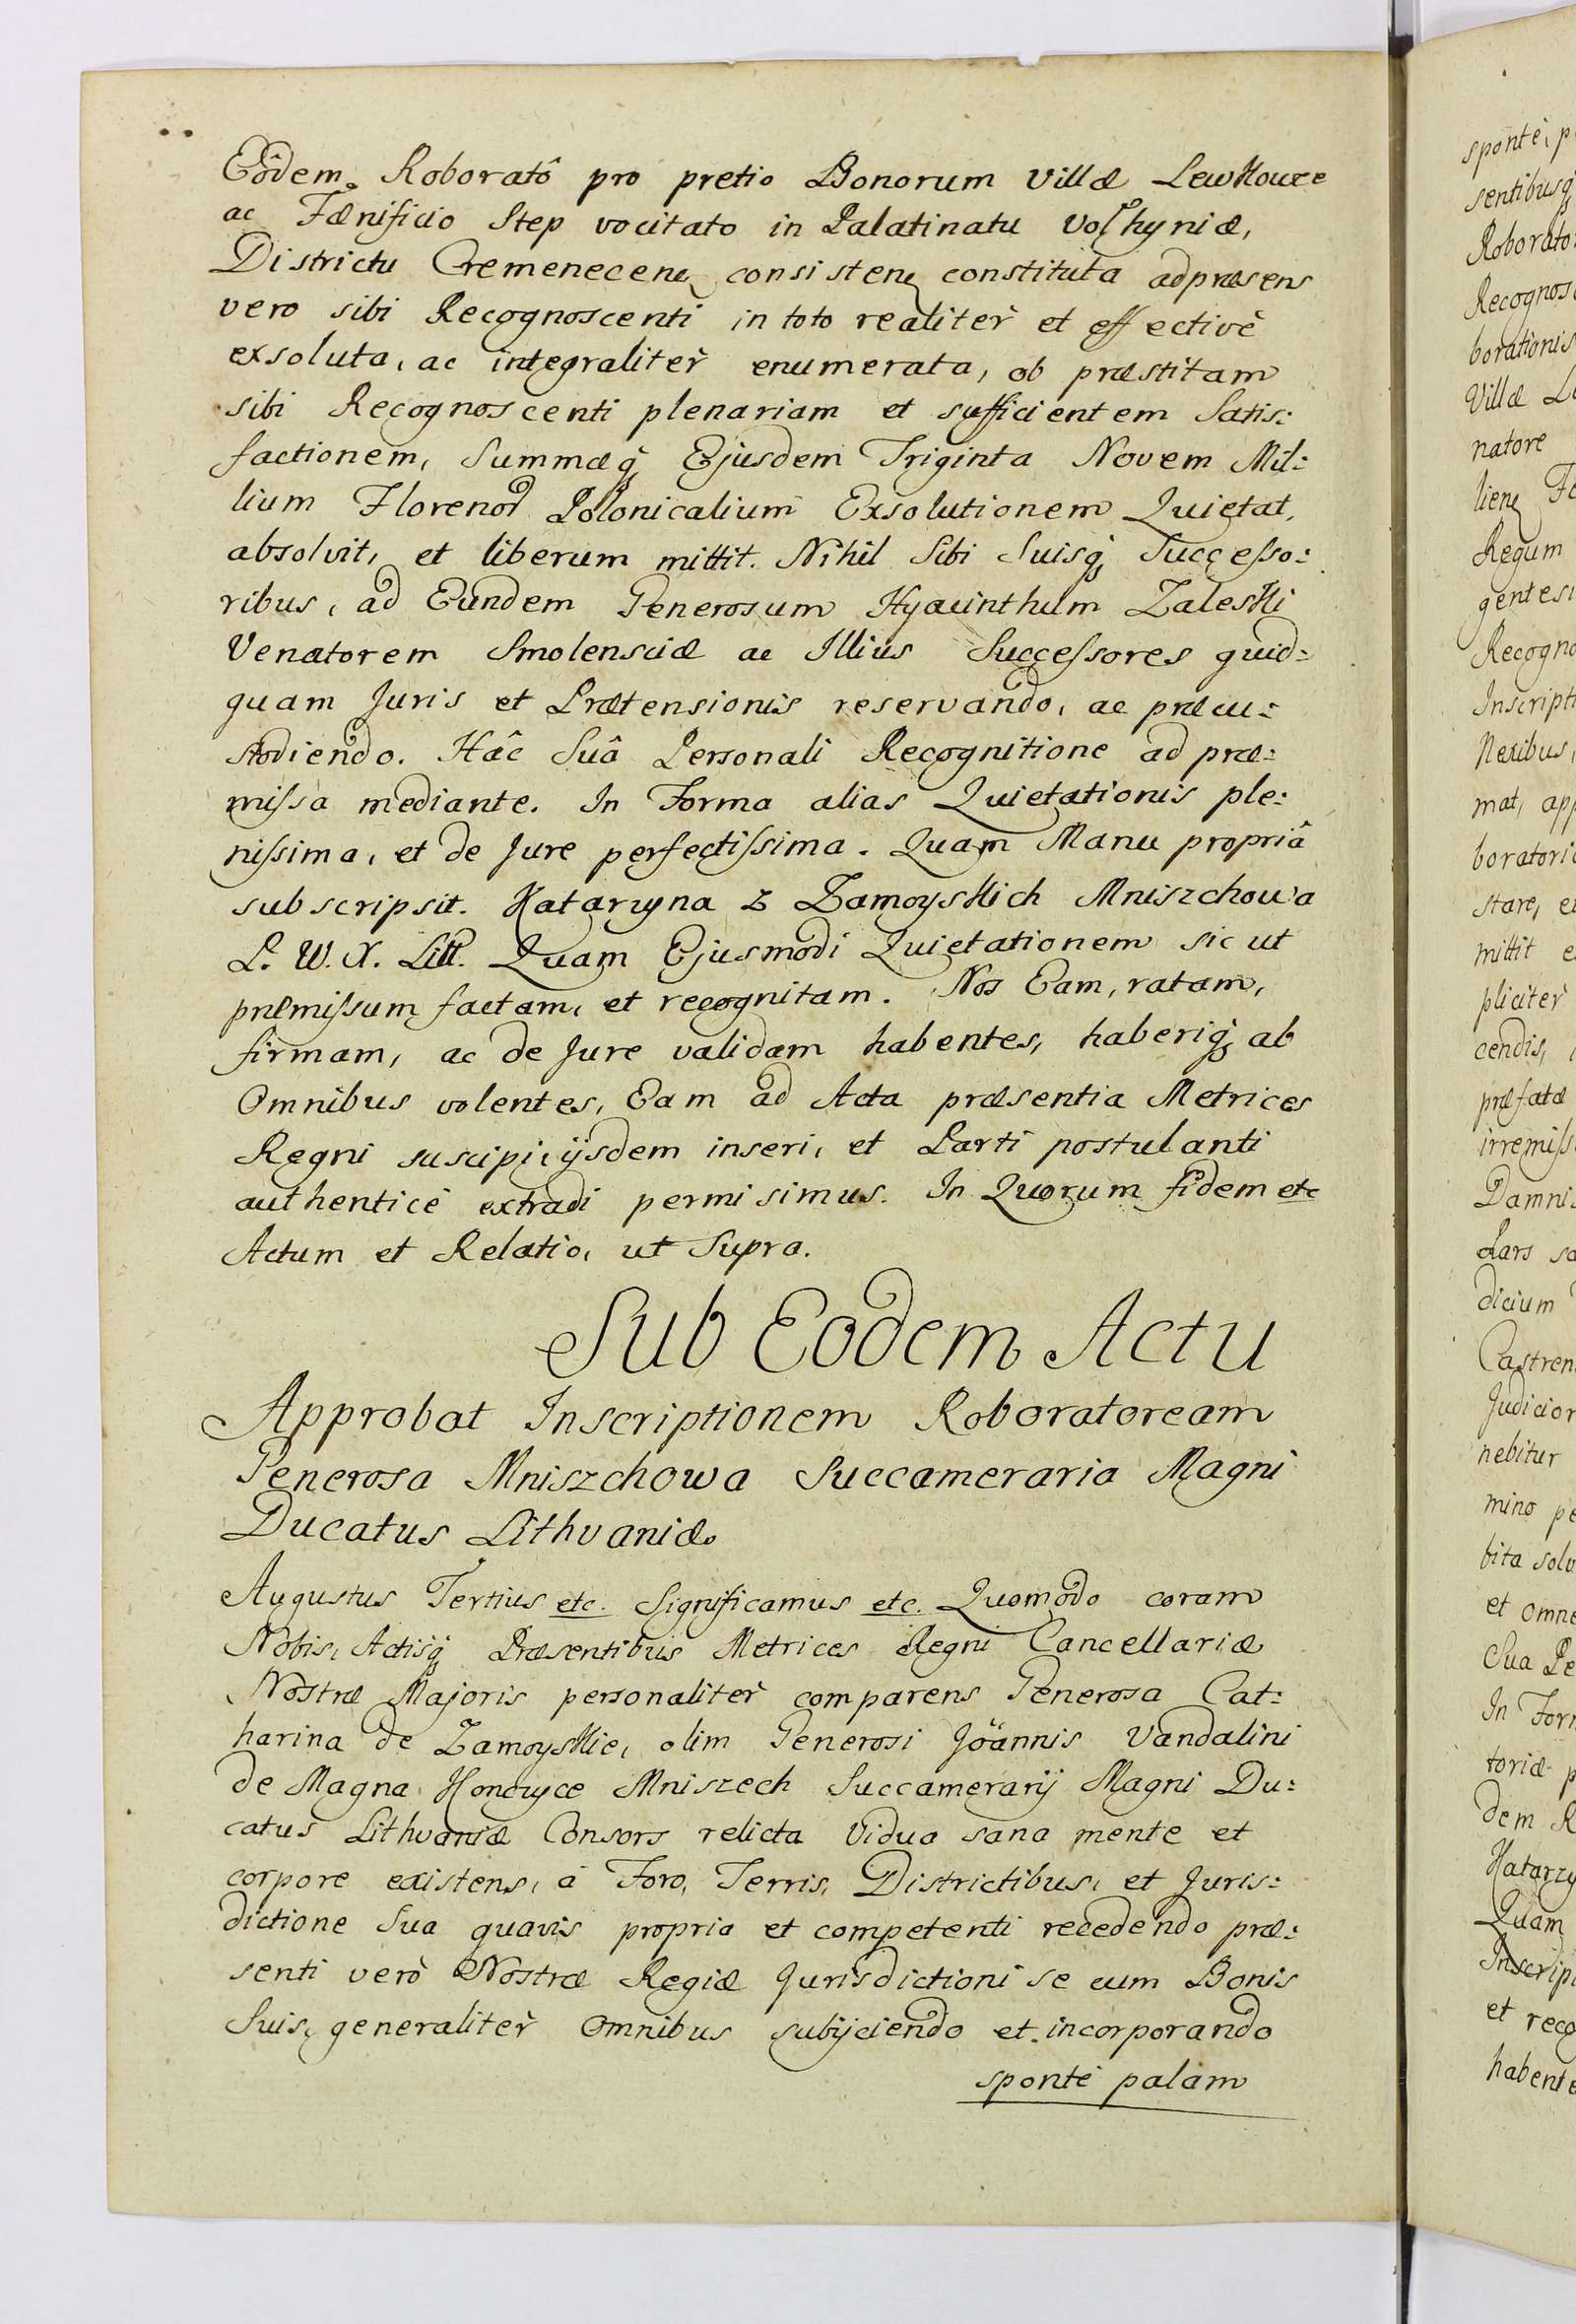 Eôdem Roboratô pro pretio Bonorum Villæ Lewkowce
ac Fænificio Step vocitato in Palatinatu Volhyniæ,
Districtu Cremenecen consisten constituta adpræsens
vero sibi Recognoscenti in toto realitèr et effectivè
exsoluta, ac integralitèr enumerata, ob præstitam
sibi Recognoscenti plenariam et sufficientem Satis:
factionem, Summæq; Ejusdem Triginta Novem Mil:
lium Florenor Polonicalium Exsolutionem Quietat,
absolvit, et liberum mittit. Nihil Sibi Suisq; Succeſso:
ribus, ad Eundem Generosum Hyacinthum Zaleski
Venatorem Smolensciæ ac Illius Succeſsores quid:
quam Juris et Prætensionis reservando, ac præcu:
stodiendo. Hâc Suâ Personali Recognitione ad præ:
miſsa mediante. In Forma alias Quietationis ple:
niſsima, et de Jure perfectiſsima. Quam Manu propriâ
subscripsit. Katarzyna z Zamoyskich Mniszchowa
P. W. X. Litt. Quam Ejusmodi Quietationem sic ut
præmiſsum factam, et recognitam. Nos Eam, ratam,
firmam, ac de Jure validam habentes, haberiq; ab
Omnibus volentes, Eam ad Acta præsentia Metrices
Regni suscipi, ijsdem inseri, et Parti postulanti
authenticè extradi permisimus. In Quorum fidem etc
Actum et Relatio, ut Supra.
Sub Eodem Actu
Approbat Inscriptionem Roboratoream
Generosa Mniszchowa Succameraria Magni
Ducatus Lithvaniæ.
Augustus Tertius etc. Significamus etc. Quomodo coram
Nobis, Actisq; Præsentibus Metrices Regni Cancellariæ
Nostræ Majoris personalitèr comparens Generosa Cat:
harina de Zamoyskie, olim Generosi Joännis Vandalini
de Magna Konczyce Mniszech Succamerarij Magni Du:
catus Lithvaniæ Consors relicta Vidua sana mente et
corpore existens, à Foro, Terris, Districtibus, et Juris:
dictione Sua quavis propria et competenti recedendo præ:
senti verò Nostræ Regiæ Jurisdictioni se cum Bonis
Suis, generalitèr Omnibus subijciendo et incorporando
spontè palam
spontè, p
sentibusq;
Roborato
Recognosc
borationis
Villæ Le
natore
lien Fæ
Regum
gentesi
Recogno
Inscripti
Nexibus,
mat, app
boratoriæ
stare, et
mittit e
plicitèr
cendis,
præfatæ
irremiſs
Damnis
Pars sa
dicium
Castren
Judicior
nebitur
mino pe
bita solv
et omne
Sua Pe
In Form
toriæ p
dem R
Katarzy
Quam
Inscrip
et reco
habente